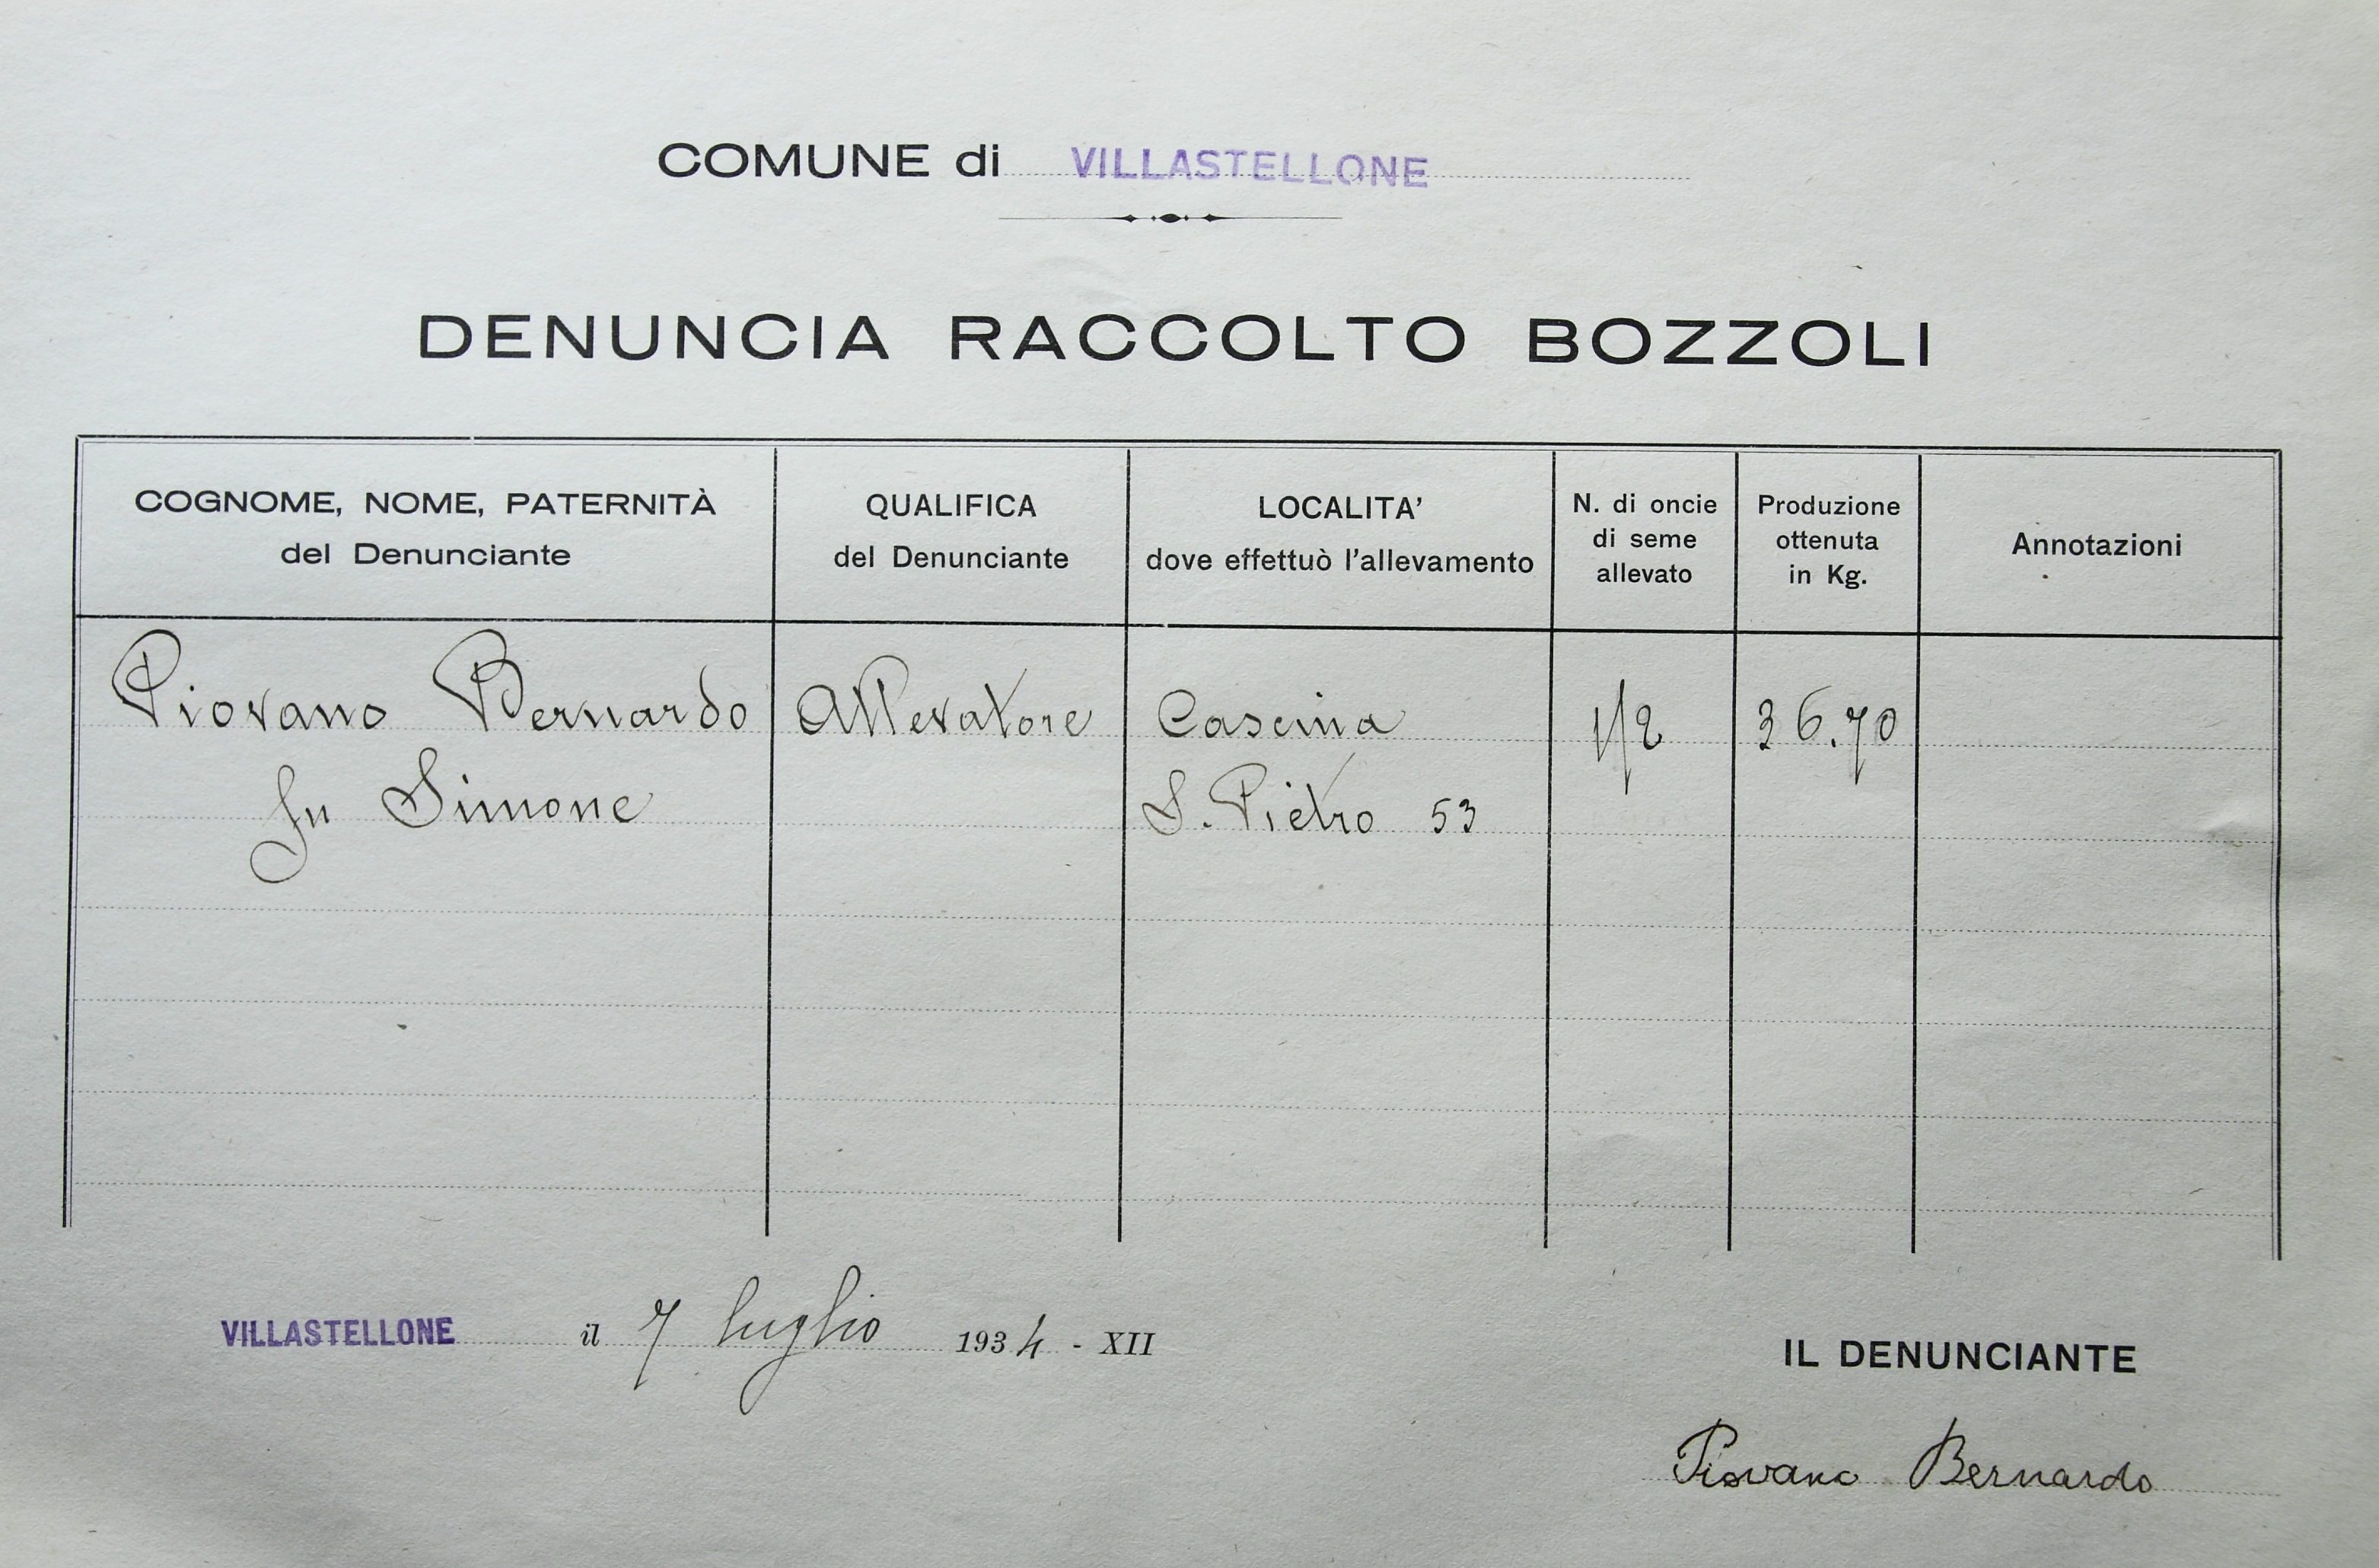 COMUNE di VILLASTELLONE
DENUNCIA RACCOLTO BOZZOLI
COGNOME, NOME, PATERNITÀ
del Denunciante
QUALIFICA
del Denunciante
LOCALITA'
dove effettuò l'allevamento
N. di oncie
di seme
allevato
Produzione
ottenuta
in Kg.
Annotazioni
Piovano Bernardo
fu Simone
Allevatore
Cascina
S. Pietro 53
1/2
36.70
VILLASTELLONE il 7 luglio 1934 - XII
IL DENUNCIANTE
Piovano Bernardo